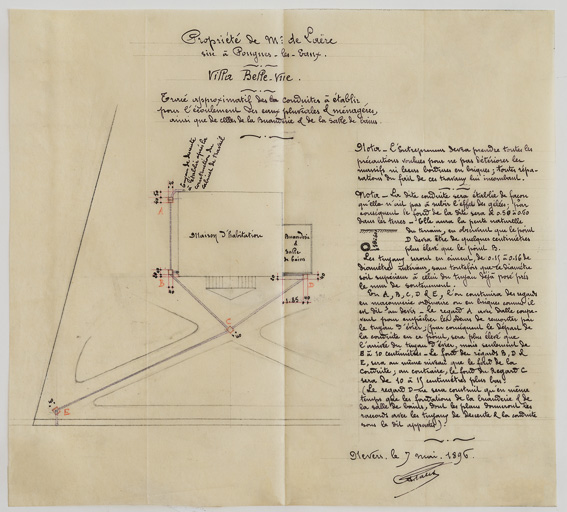 Propriété de Mr. de Laëre
sise à Pougues-les-Eaux.
Villa Belle-Vue.
Tracé approximatif des conduites à établir
pour l'écoulement des eaux pluviales & ménagères,
ainsi que de celles de la Buanderie & de la Salle de bains.
Nota - L'Entrepreneur devra prendre toutes les
précautions voulues pour ne pas détériorer les
massifs ni leurs bordures en briques; toute répa-
ration du fait de ces travaux lui incombant.
Nota - La dite conduite sera établie de façon
qu'elle n'ait pas à subir l'effet des gelées; par
conséquent le fond de la dite sera à 0.50 à 0.60
dans les terres - Elle aura la pente naturelle
du terrain, en observant que le point
D devra être de quelques centimètres
plus élevé que le point B.
Les tuyaux seront en ciment, de 0.15 à 0.16 de
diamètre intérieur, sans toutefois que ce diamètre
soit supérieur à celui du tuyau déjà posé sous
le mur de soutènement.
En A, B, C, D & E, l'on construira des regards
en maçonnerie ordinaire ou en briques comme il
est dit au devis - Le regard A avec dalle coupe-
vent pour empêcher les odeurs de remonter par
le tuyau d'évier; par conséquent le départ de
la conduite en ce point, sera plus élevé que
l'arrivée du tuyau d'évier, mais seulement de
8 à 10 centimètres - Le fond des regards B, D &
E, sera au même niveau que le fond de la
conduite; au contraire, le fond du Regard C
sera de 10 à 15 centimètres plus bas.
(Le regard D - sera construit en même
temps que les fondations de la buanderie & de
la salle de bains, dont les plans donneront les
raccords avec les tuyaux de descente & la conduite
sous le dit appareil).
Maison d'habitation
Buanderie
&
Salle
de bains
A
B
C
D
E
1.65
Nevers, le 7 mai 1896.